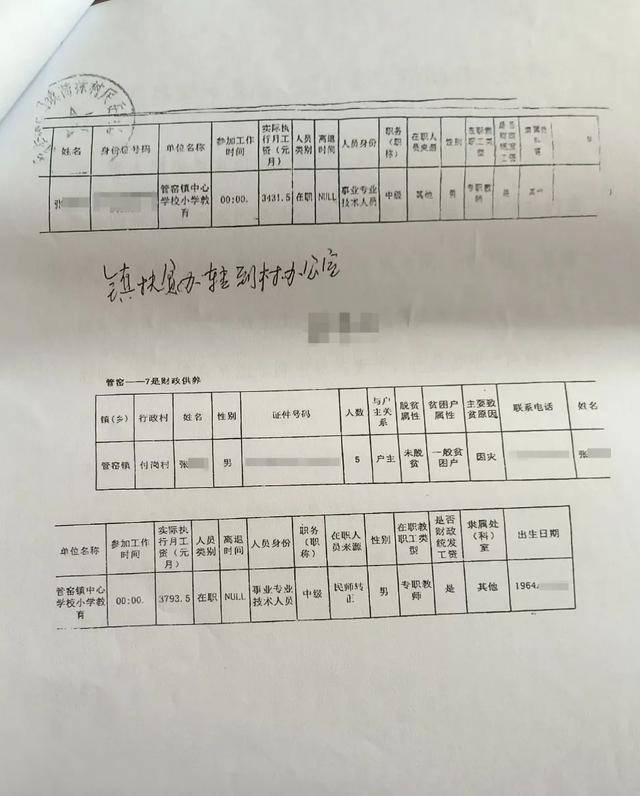 姓名 身份证号码 单位名称 参加工作时间 实际执行月工资（元月） 人员类别 离退时间 人员身份 职务（职称） 在职人员来源 性别 在职教职工类型 是否财政统发工资
张 管窑镇中心学校小学教育 00:00. 3431.5 在职 NULL 事业专业技术人员 中级 其他 男 专职教师 是 其他
镇扶贫办转到村办公室
管窑——7是财政供养
镇(乡) 行政村 姓名 性别 证件号码 人数 与户主关系 脱贫属性 贫困户属性 主要致贫原因 联系电话 姓名
管窑镇 付岗村 张 男 5 户主 未脱贫 一般贫困户 因灾 张
单位名称 参加工作时间 实际执行月工资（元月） 人员类别 离退时间 人员身份 职务（职称） 在职人员来源 性别 在职教职工类型 是否财政统发工资 隶属处（科）室 出生日期
管窑镇中心学校小学教育 00:00. 3793.5 在职 NULL 事业专业技术人员 中级 民师转正 男 专职教师 是 其他 1964.